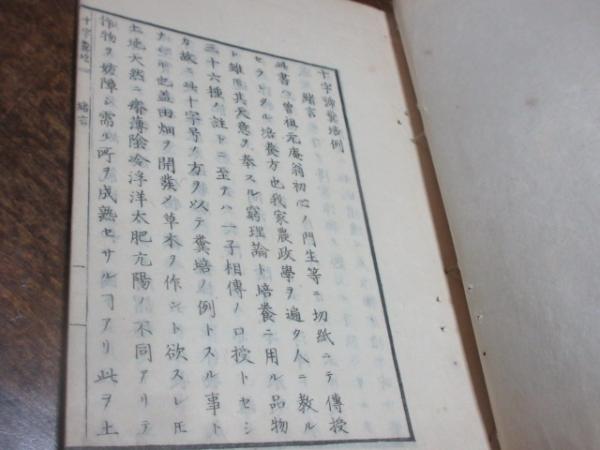 十字號糞培例
緒言
此書ハ曾祖元庵翁初心ノ門生等ニ切紙ニテ傳授
セラレタル培養方也我家農政學ヲ遍ク人ニ教ル
ト雖𪜈其天意ヲ奉スル窮理論ト培養ニ用ル品物
三十六種ノ註トニ至テハ一子相傳ノ口授トセシ
カ故ニ此十字号ノ方ヲ以テ糞培ノ例トスル事ト
ナ也蓋田畑ヲ開發メ草木ヲ作ント欲スレ𪜈
土地天然ニ瘠薄陰冷浮洋太肥亢陽ノ不同アリテ
作物ヲ妨障シ需ル所ヲ成熟セサルヿアリ此ヲ土
十字號 緒言 一